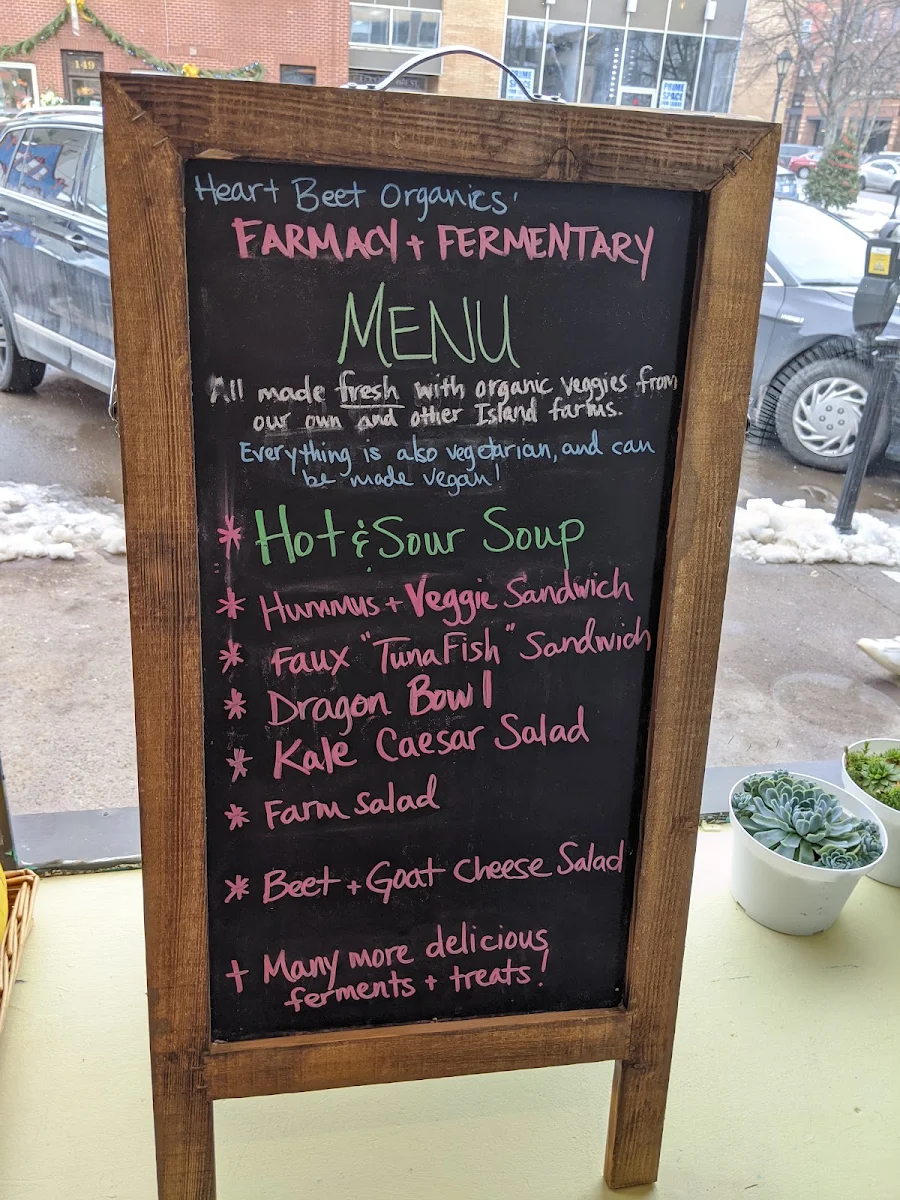 149
PRIME
SPACE
PRIME
SPACE
Heart Beet Organics'
FARMACY + FERMENTARY
MENU
All made fresh with organic veggies from
our own and other Island farms.
Everything is also vegetarian, and can
be made vegan!
* Hot & Sour Soup
* Hummus + Veggie Sandwich
* Faux "Tuna Fish" Sandwich
* Dragon Bowl
* Kale Caesar Salad
* Farm Salad
* Beet + Goat Cheese Salad
+ Many more delicious
ferments + treats!